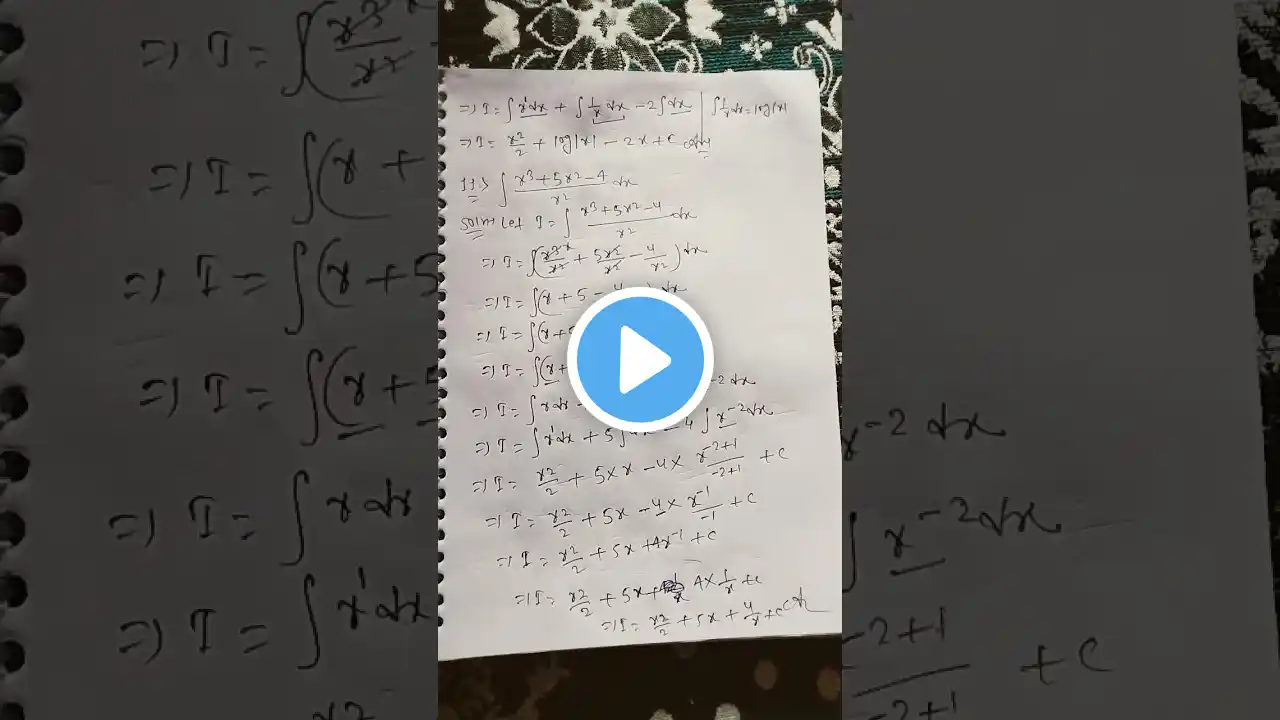 ⇒ I = ∫x¹dx + ∫1/x dx − 2∫dx | ∫1/x dx = log|x|
⇒ I = x²/2 + log|x| − 2x + C Ans
11> ∫ (x³+5x²−4)/x² dx
Soln Let I = ∫ (x³+5x²−4)/x² dx
⇒ I = ∫(x³/x² + 5x²/x² − 4/x²) dx
⇒ I = ∫(x + 5 − 4 dx
⇒ I = ∫(x + 5
⇒ I = ∫(x +
⇒ I = ∫x dx − 2 dx
⇒ I = ∫x¹dx + 5∫dx − 4∫x⁻²dx
⇒ I = x²/2 + 5×x − 4× x⁻²⁺¹/−2+1 + C
⇒ I = x²/2 + 5x − 4× x⁻¹/−1 + C
⇒ I = x²/2 + 5x + 4x⁻¹ + C
⇒ I = x²/2 + 5x + 4×1/x + C
⇒ I = x²/2 + 5x + 4/x + C